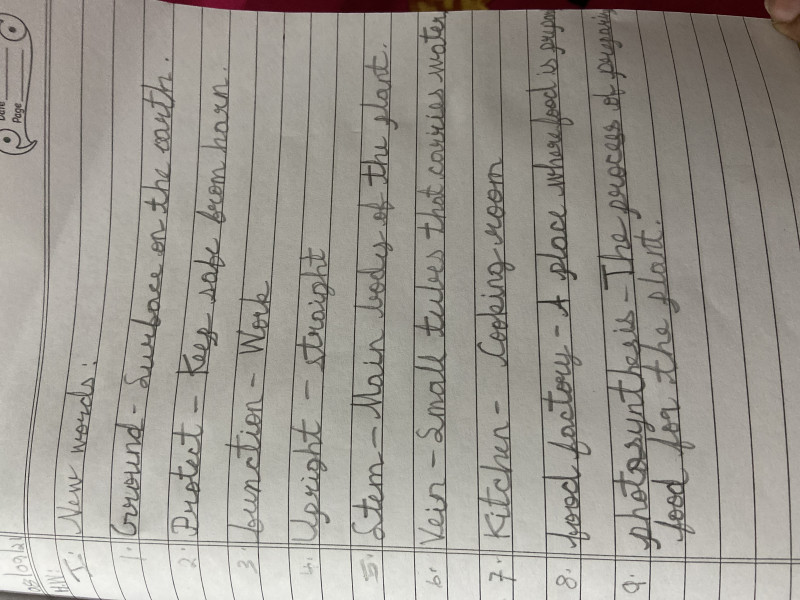 Date
Page
08/09/21
HW:
I. New words:
1. Ground - Surface on the earth.
2. Protect - Keep safe from harm.
3. function - Work
4. Upright - straight
5. Stem - Main body of the plant.
6. Vein - Small tubes that carries water
7. Kitchen - Cooking room
8. food factory - A place where food is
9. photosynthesis - The process of
food for the plant.